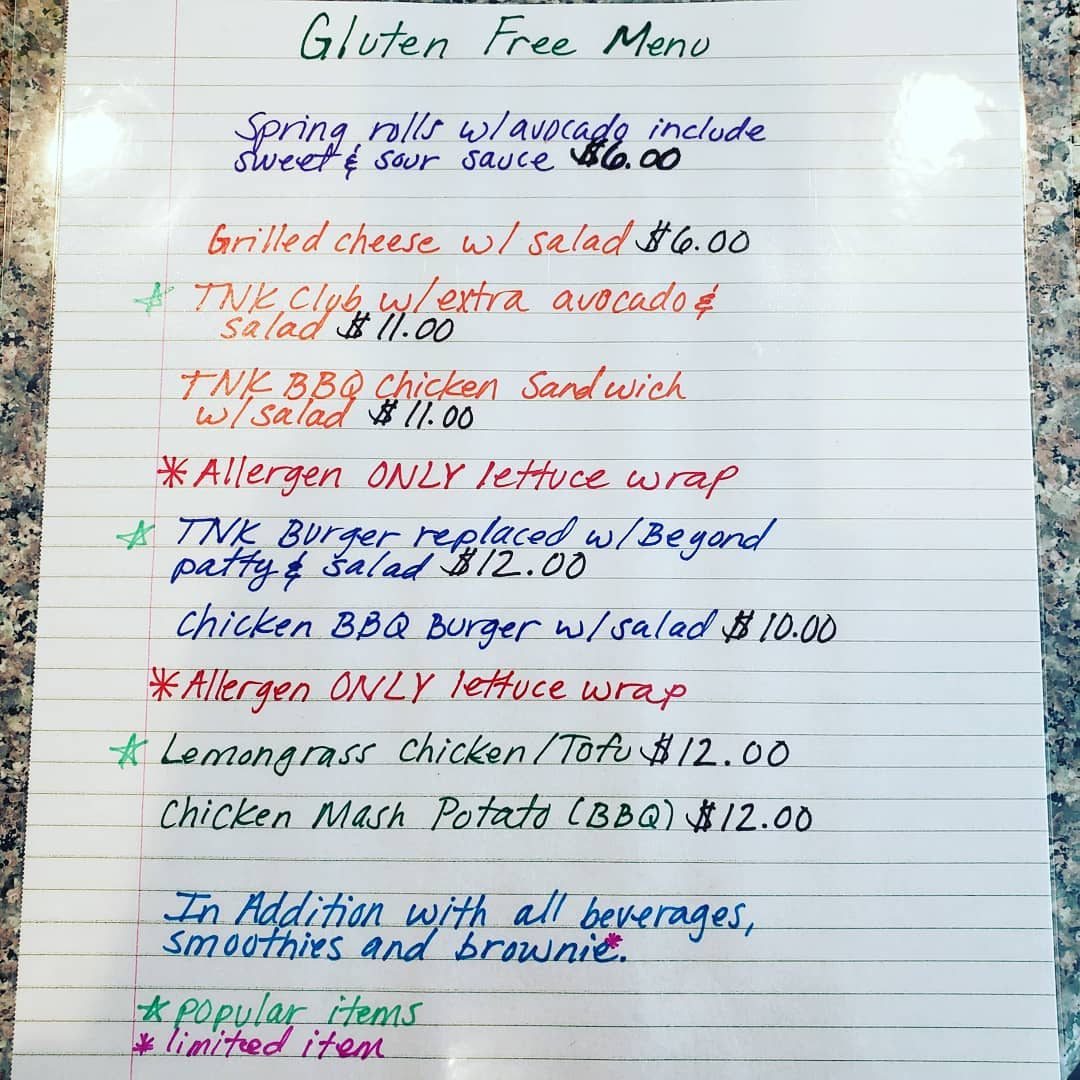 Gluten Free Menu
Spring rolls w/avocado include
sweet & sour sauce $6.00
Grilled cheese w/ salad $6.00
☆ TNK Club w/extra avocado &
salad $11.00
TNK BBQ Chicken Sandwich
w/salad $11.00
*Allergen ONLY lettuce wrap
☆ TNK Burger replaced w/Beyond
patty & salad $12.00
Chicken BBQ Burger w/salad $10.00
*Allergen ONLY lettuce wrap
☆ Lemongrass Chicken/Tofu $12.00
Chicken Mash Potato (BBQ) $12.00
In Addition with all beverages,
smoothies and brownie*.
☆ popular items
* limited item